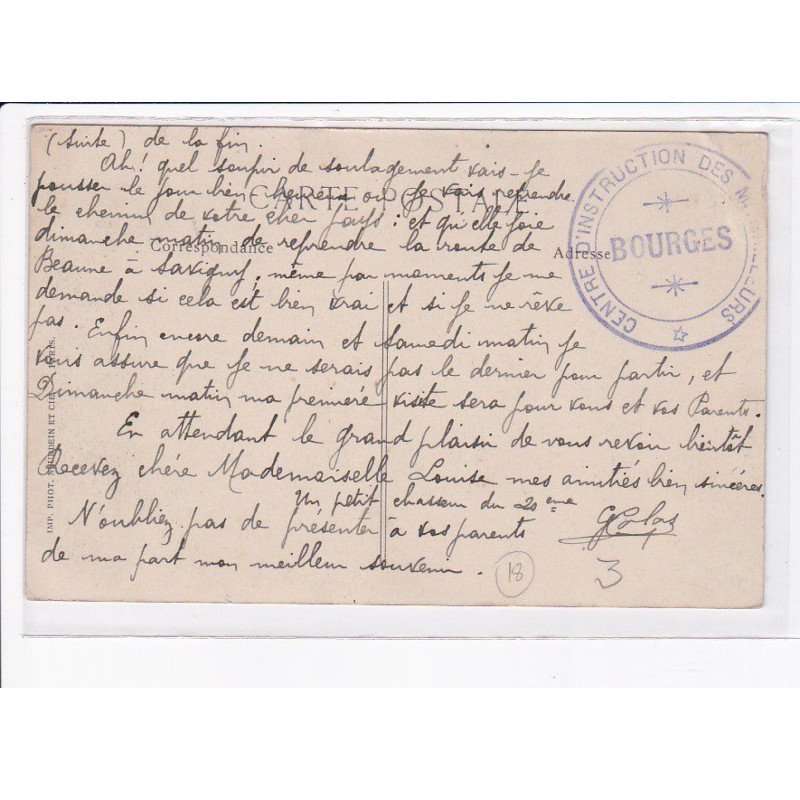 (Suite) de la fin.
Ah! quel soupir de soulagement vais-je
pousser le jour bien heureux ou je vais reprendre
CARTE POSTALE
le chemin de votre cher pays: et qu'elle joie
dimanche matin de reprendre la route de
Correspondance
Adresse
Beaune à Savigny, même par moments je me
demande si cela est bien vrai et si je ne rêve
pas. Enfin encore demain et samedi matin je
vous assure que je ne serais pas le dernier pour partir, et
Dimanche matin ma première visite sera pour vous et vos Parents.
En attendant le grand plaisir de vous revoir bientôt
Recevez chère Mademoiselle Louise mes amitiés bien sincères.
Un petit chasseur du 20 eme
N'oubliez pas de présenter à vos parents
de ma part mon meilleur souvenir.
18
3
CENTRE D'INSTRUCTION DES
BOURGES
IMP. PHOT. ET CIE